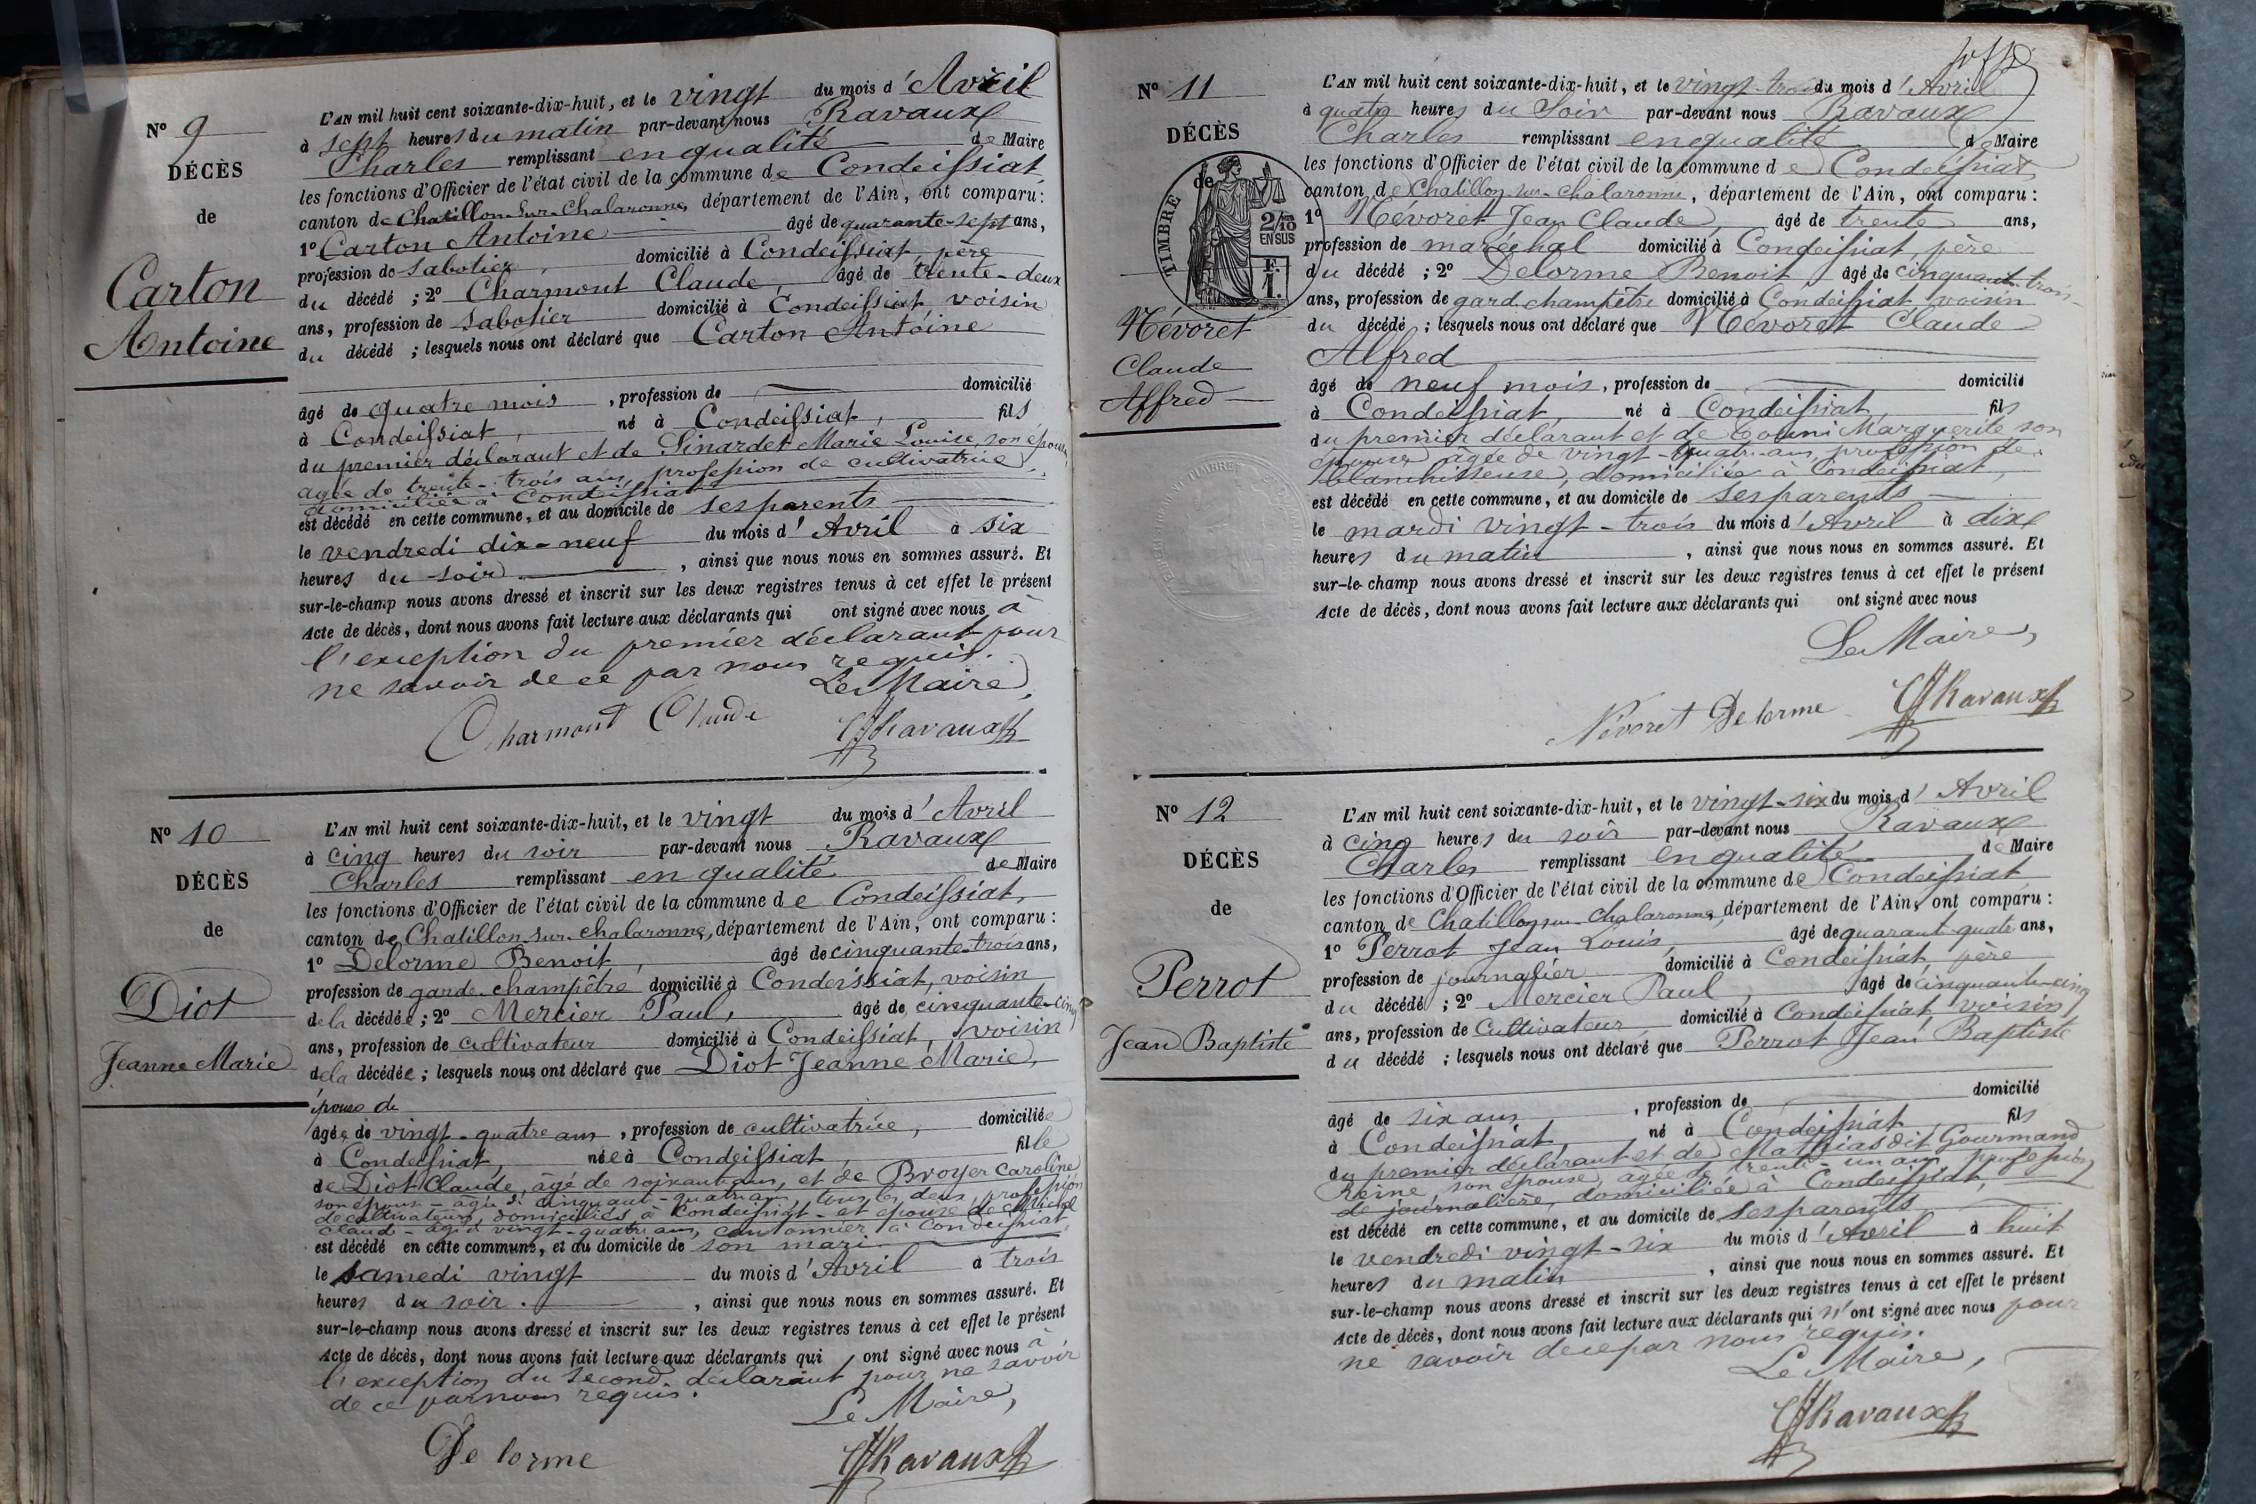 N° 9
DÉCÈS
de
Carton
Antoine
L'AN mil huit cent soixante-dix-huit, et le vingt du mois d'Avril
à sept heures du matin par-devant nous Ravaux
Charles remplissant en qualité de Maire
les fonctions d'Officier de l'état civil de la commune de Condeissiat
canton de Chatillon-sur-Chalaronne, département de l'Ain, ont comparu :
1° Carton Antoine âgé de quarante-sept ans,
profession de sabotier, domicilié à Condeissiat, père
du décédé ; 2° Charmont Claude, âgé de trente-deux
ans, profession de sabotier domicilié à Condeissiat, voisin
du décédé ; lesquels nous ont déclaré que Carton Antoine
âgé de quatre mois, profession de domicilié
à Condeissiat, né à Condeissiat, fils
du premier déclarant et de Sinardet Marie Louise, son épouse,
agée de trente-trois ans, profession de cultivatrice,
domiciliée à Condeissiat
est décédé en cette commune, et au domicile de ses parents
le vendredi dix-neuf du mois d'Avril à six
heures du soir, ainsi que nous nous en sommes assuré. Et
sur-le-champ nous avons dressé et inscrit sur les deux registres tenus à cet effet le présent
Acte de décès, dont nous avons fait lecture aux déclarants qui ont signé avec nous à
l'exception du premier déclarant pour
ne savoir de ce par nous requis.
Le Maire,
Charmont Claude ChRavaux
N° 10
DÉCÈS
de
Diot
Jeanne Marie
L'AN mil huit cent soixante-dix-huit, et le vingt du mois d'Avril
à cinq heures du soir par-devant nous Ravaux
Charles remplissant en qualité de Maire
les fonctions d'Officier de l'état civil de la commune de Condeissiat,
canton de Chatillon-sur-Chalaronne, département de l'Ain, ont comparu :
1° Delorme Benoit, âgé de cinquante-trois ans,
profession de garde-champêtre domicilié à Condeissiat, voisin
de la décédée ; 2° Mercier Paul, âgé de cinquante-cinq
ans, profession de cultivateur domicilié à Condeissiat, voisin
de la décédée ; lesquels nous ont déclaré que Diot Jeanne Marie,
épouse de
âgée de vingt-quatre ans, profession de cultivatrice, domiciliée
à Condeissiat, née à Condeissiat, fille
de Diot Claude, âgé de soixante ans, et de Broyer Caroline
son épouse - âgée de cinquante-quatre ans, tous les deux, profession
de cultivateurs, domiciliés à Condeissiat - et épouse de Michel
Claude - âgé de vingt-quatre ans, cantonnier à Condeissiat,
est décédé en cette commune, et au domicile de son mari
le samedi vingt du mois d'Avril à trois
heures du soir, ainsi que nous nous en sommes assuré. Et
sur-le-champ nous avons dressé et inscrit sur les deux registres tenus à cet effet le présent
Acte de décès, dont nous avons fait lecture aux déclarants qui ont signé avec nous à
l'exception du second déclarant pour ne savoir
de ce par nous requis.
Le Maire,
Delorme ChRavaux
N° 11
DÉCÈS
de
TIMBRE
2/10
EN SUS
Névoret
Claude
Alfred
L'AN mil huit cent soixante-dix-huit, et le vingt-trois du mois d'Avril
à quatre heures du soir par-devant nous Ravaux
Charles remplissant en qualité de Maire
les fonctions d'Officier de l'état civil de la commune de Condeissiat
canton de Chatillon-sur-Chalaronne, département de l'Ain, ont comparu :
1° Névoret Jean Claude, âgé de trente ans,
profession de maréchal domicilié à Condeissiat, père
du décédé ; 2° Delorme Benoit, âgé de cinquante-trois
ans, profession de garde champêtre domicilié à Condeissiat, voisin
du décédé ; lesquels nous ont déclaré que Névoret Claude
Alfred
âgé de neuf mois, profession de domicilié
à Condeissiat, né à Condeissiat, fils
du premier déclarant et de Marguerite son
épouse, âgée de vingt-quatre ans, profession de
blanchisseuse, domiciliée à Condeissiat,
est décédé en cette commune, et au domicile de ses parents
le mardi vingt-trois du mois d'Avril à dix
heures du matin, ainsi que nous nous en sommes assuré. Et
sur-le-champ nous avons dressé et inscrit sur les deux registres tenus à cet effet le présent
Acte de décès, dont nous avons fait lecture aux déclarants qui ont signé avec nous
Le Maire,
Névoret Delorme ChRavaux
N° 12
DÉCÈS
de
Perrot
Jean Baptiste
L'AN mil huit cent soixante-dix-huit, et le vingt-six du mois d'Avril
à cinq heures du soir par-devant nous Ravaux
Charles remplissant en qualité de Maire
les fonctions d'Officier de l'état civil de la commune de Condeissiat
canton de Chatillon-sur-Chalaronne, département de l'Ain, ont comparu :
1° Perrot Jean Louis, âgé de quarante-quatre ans,
profession de journalier domicilié à Condeissiat, père
du décédé ; 2° Mercier Paul, âgé de cinquante-cinq
ans, profession de cultivateur, domicilié à Condeissiat, voisin
du décédé ; lesquels nous ont déclaré que Perrot Jean Baptiste
âgé de six ans, profession de domicilié
à Condeissiat, né à Condeissiat, fils
du premier déclarant et de Mathias dit Gourmand
Reine, son épouse, agée de trente-un ans, profession
de journalière, domiciliée à Condeissiat,
est décédé en cette commune, et au domicile de ses parents
le vendredi vingt-six du mois d'Avril à huit
heures du matin, ainsi que nous nous en sommes assuré. Et
sur-le-champ nous avons dressé et inscrit sur les deux registres tenus à cet effet le présent
Acte de décès, dont nous avons fait lecture aux déclarants qui n'ont signé avec nous pour
ne savoir de ce par nous requis.
Le Maire,
ChRavaux